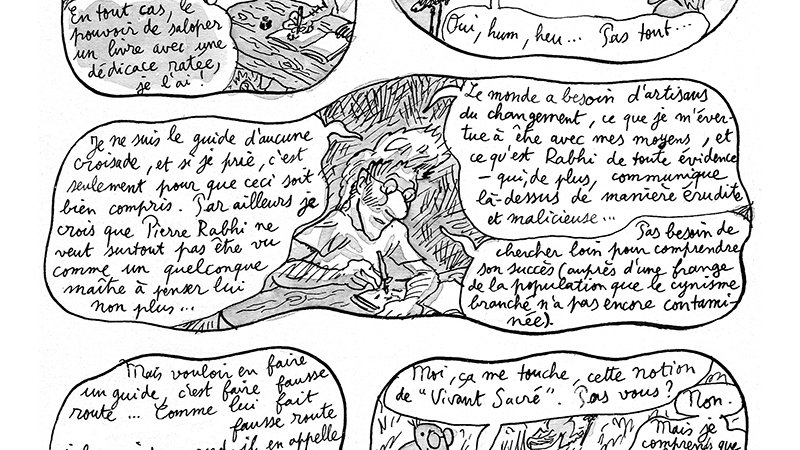 En tout cas, le
pouvoir de saloper
un livre avec une
dédicace ratée,
je l'ai !
Oui, hum, heu... Pas tout...
Je ne suis le guide d'aucune
croisade, et si je prie, c'est
seulement pour que ceci soit
bien compris. Par ailleurs je
crois que Pierre Rabhi ne
veut surtout pas être vu
comme un quelconque
maître à penser lui
non plus...
Le monde a besoin d'artisans
du changement, ce que je m'éver-
tue à être avec mes moyens, et
ce qu'est Rabhi de toute évidence
– qui, de plus, communique
là-dessus de manière érudite
et malicieuse...
Pas besoin de
chercher loin pour comprendre
son succès (auprès d'une frange
de la population que le cynisme
branché n'a pas encore contami-
née).
Mais vouloir en faire
un guide, c'est faire fausse
route... Comme lui fait
fausse route
il en appelle
Moi, ça me touche, cette notion
de "Vivant Sacré". Pas vous ?
Non.
Mais je
comprends que